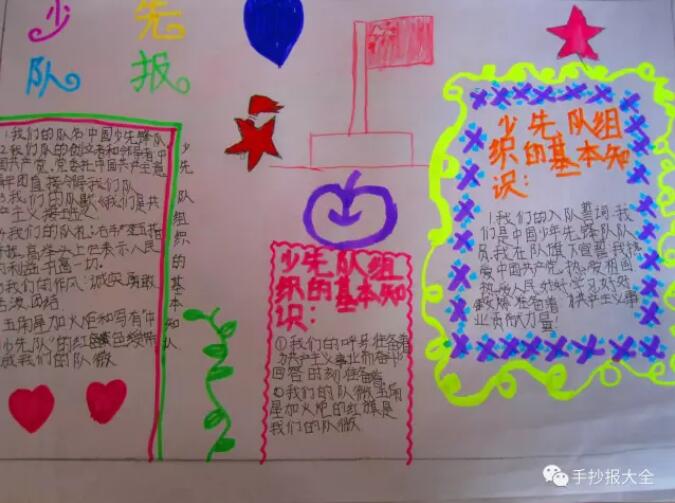 少先
队报
1.我们的队名中国少先锋队
2.我们队的创立者和领导者中
国共产党,党委托中国共产主义青
年团直接领导我们队
3.我们的队歌《我们是共
产主义接班人》
4.我们的队礼:右手五指
并拢,高举头上它表示人民
的利益高于一切。
5.我们的作风:诚实勇敢
活泼团结
五角星加火炬和写有“中
少先队”的红色
成我们的队徽
少先队组织的基本知识
少先队组
织的基本知
识:
①我们的呼号:准备着
为共产主义事业而奋斗
回答的刻准备着
②我们的队徽五角
星加火炬的红旗是
我们的队徽
少先队组
织的基本知
识:
1.我们的入队誓词:我
们是中国少年先锋队队
员,我在队旗下宣誓我热
爱中国共产党,热爱祖国
热爱人民好好学习好好
锻炼准备着为共产主义事
业贡献力量!
手抄报大全